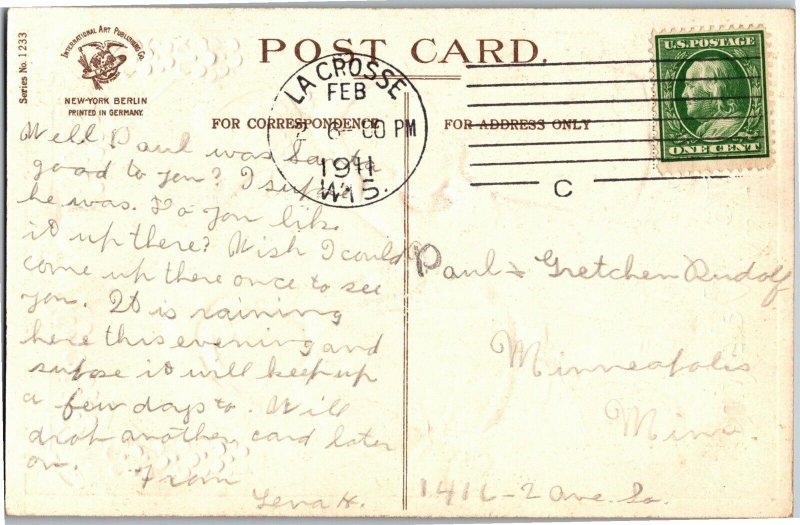 Series No. 1233
INTERNATIONAL ART PUBLISHING CO.
NEW-YORK BERLIN
PRINTED IN GERMANY.
POST CARD.
FOR CORRESPONDENCE
FOR ADDRESS ONLY
LA CROSSE
FEB
6-00 PM
1911
WIS.
C
U.S. POSTAGE
ONE CENT
Well Paul was Santa
good to you? I supose
he was. Do you like
it up there? Wish I could
come up there once to see
you. It is raining
here this evening and
supose it will keep up
a few days to. Will
drop another card later
on.
From
Lena H.
Paul & Gretchen Rudolf
Minneapolis
Minn.
1416-2 Ave. So.